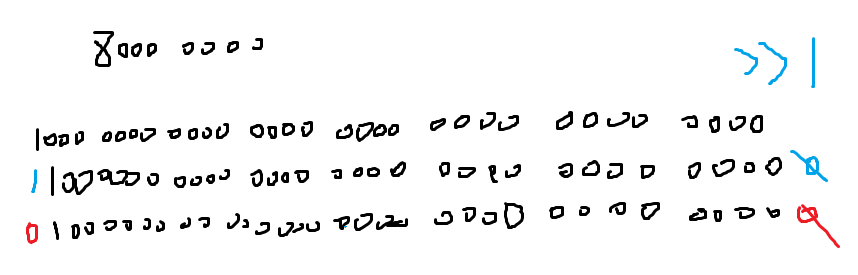 8000 0000
>> 1
1000 0000 0000 0000 0000 0000 0000 0000
1 1000000 0000 0000 0000 0000 0000 0000 0
0 1000000 0000 0000 0000 0000 0000 0000 0